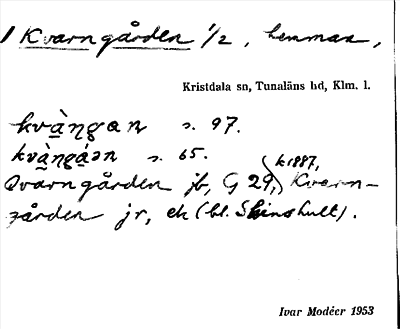 1 Kvarngården 1/2, hemman,
Kristdala sn, Tunaläns hd, Klm. l.
kvàŋgan s. 97.
kvàŋgáən s. 65.
Qvarngården jb, G 29, (k 1887,) Kvarn-
gården jr, ek (bl. Skinshult).
Ivar Modéer 1953